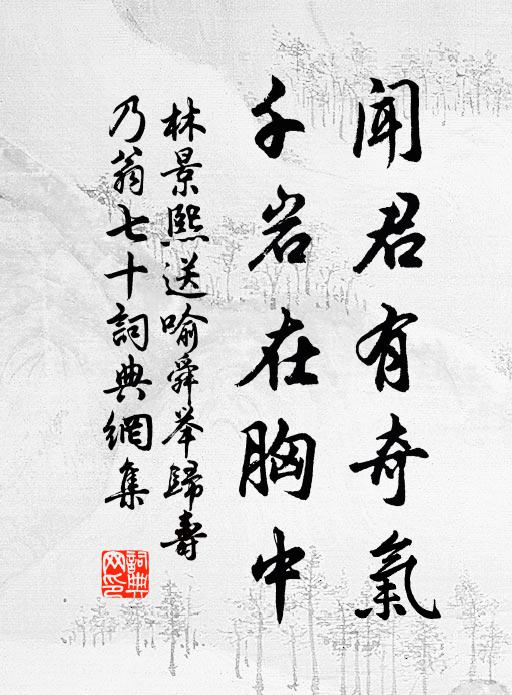 闻君有奇氣
千岩在胸中
林景熙送喻舜举歸壽
乃翁七十詞典網集
詞典网印